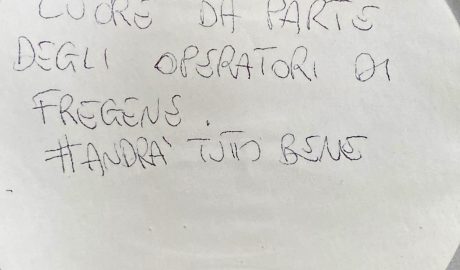 CUORE DA PARTE
DEGLI OPERATORI DI
FREGENE.
#ANDRA' TUTTO BENE